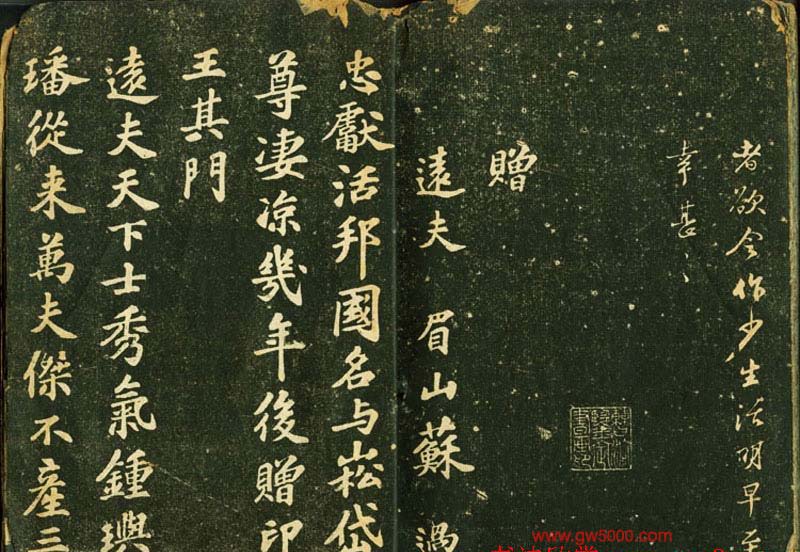 者欲令作少生活明早至
幸甚〻
贈
遠夫 眉山蘇過
忠獻活邦國名与崧岱
尊凄凉幾年後贈印
王其門
遠夫天下士秀氣鍾璵
璠從来萬夫傑不産三
www.gw5000.com